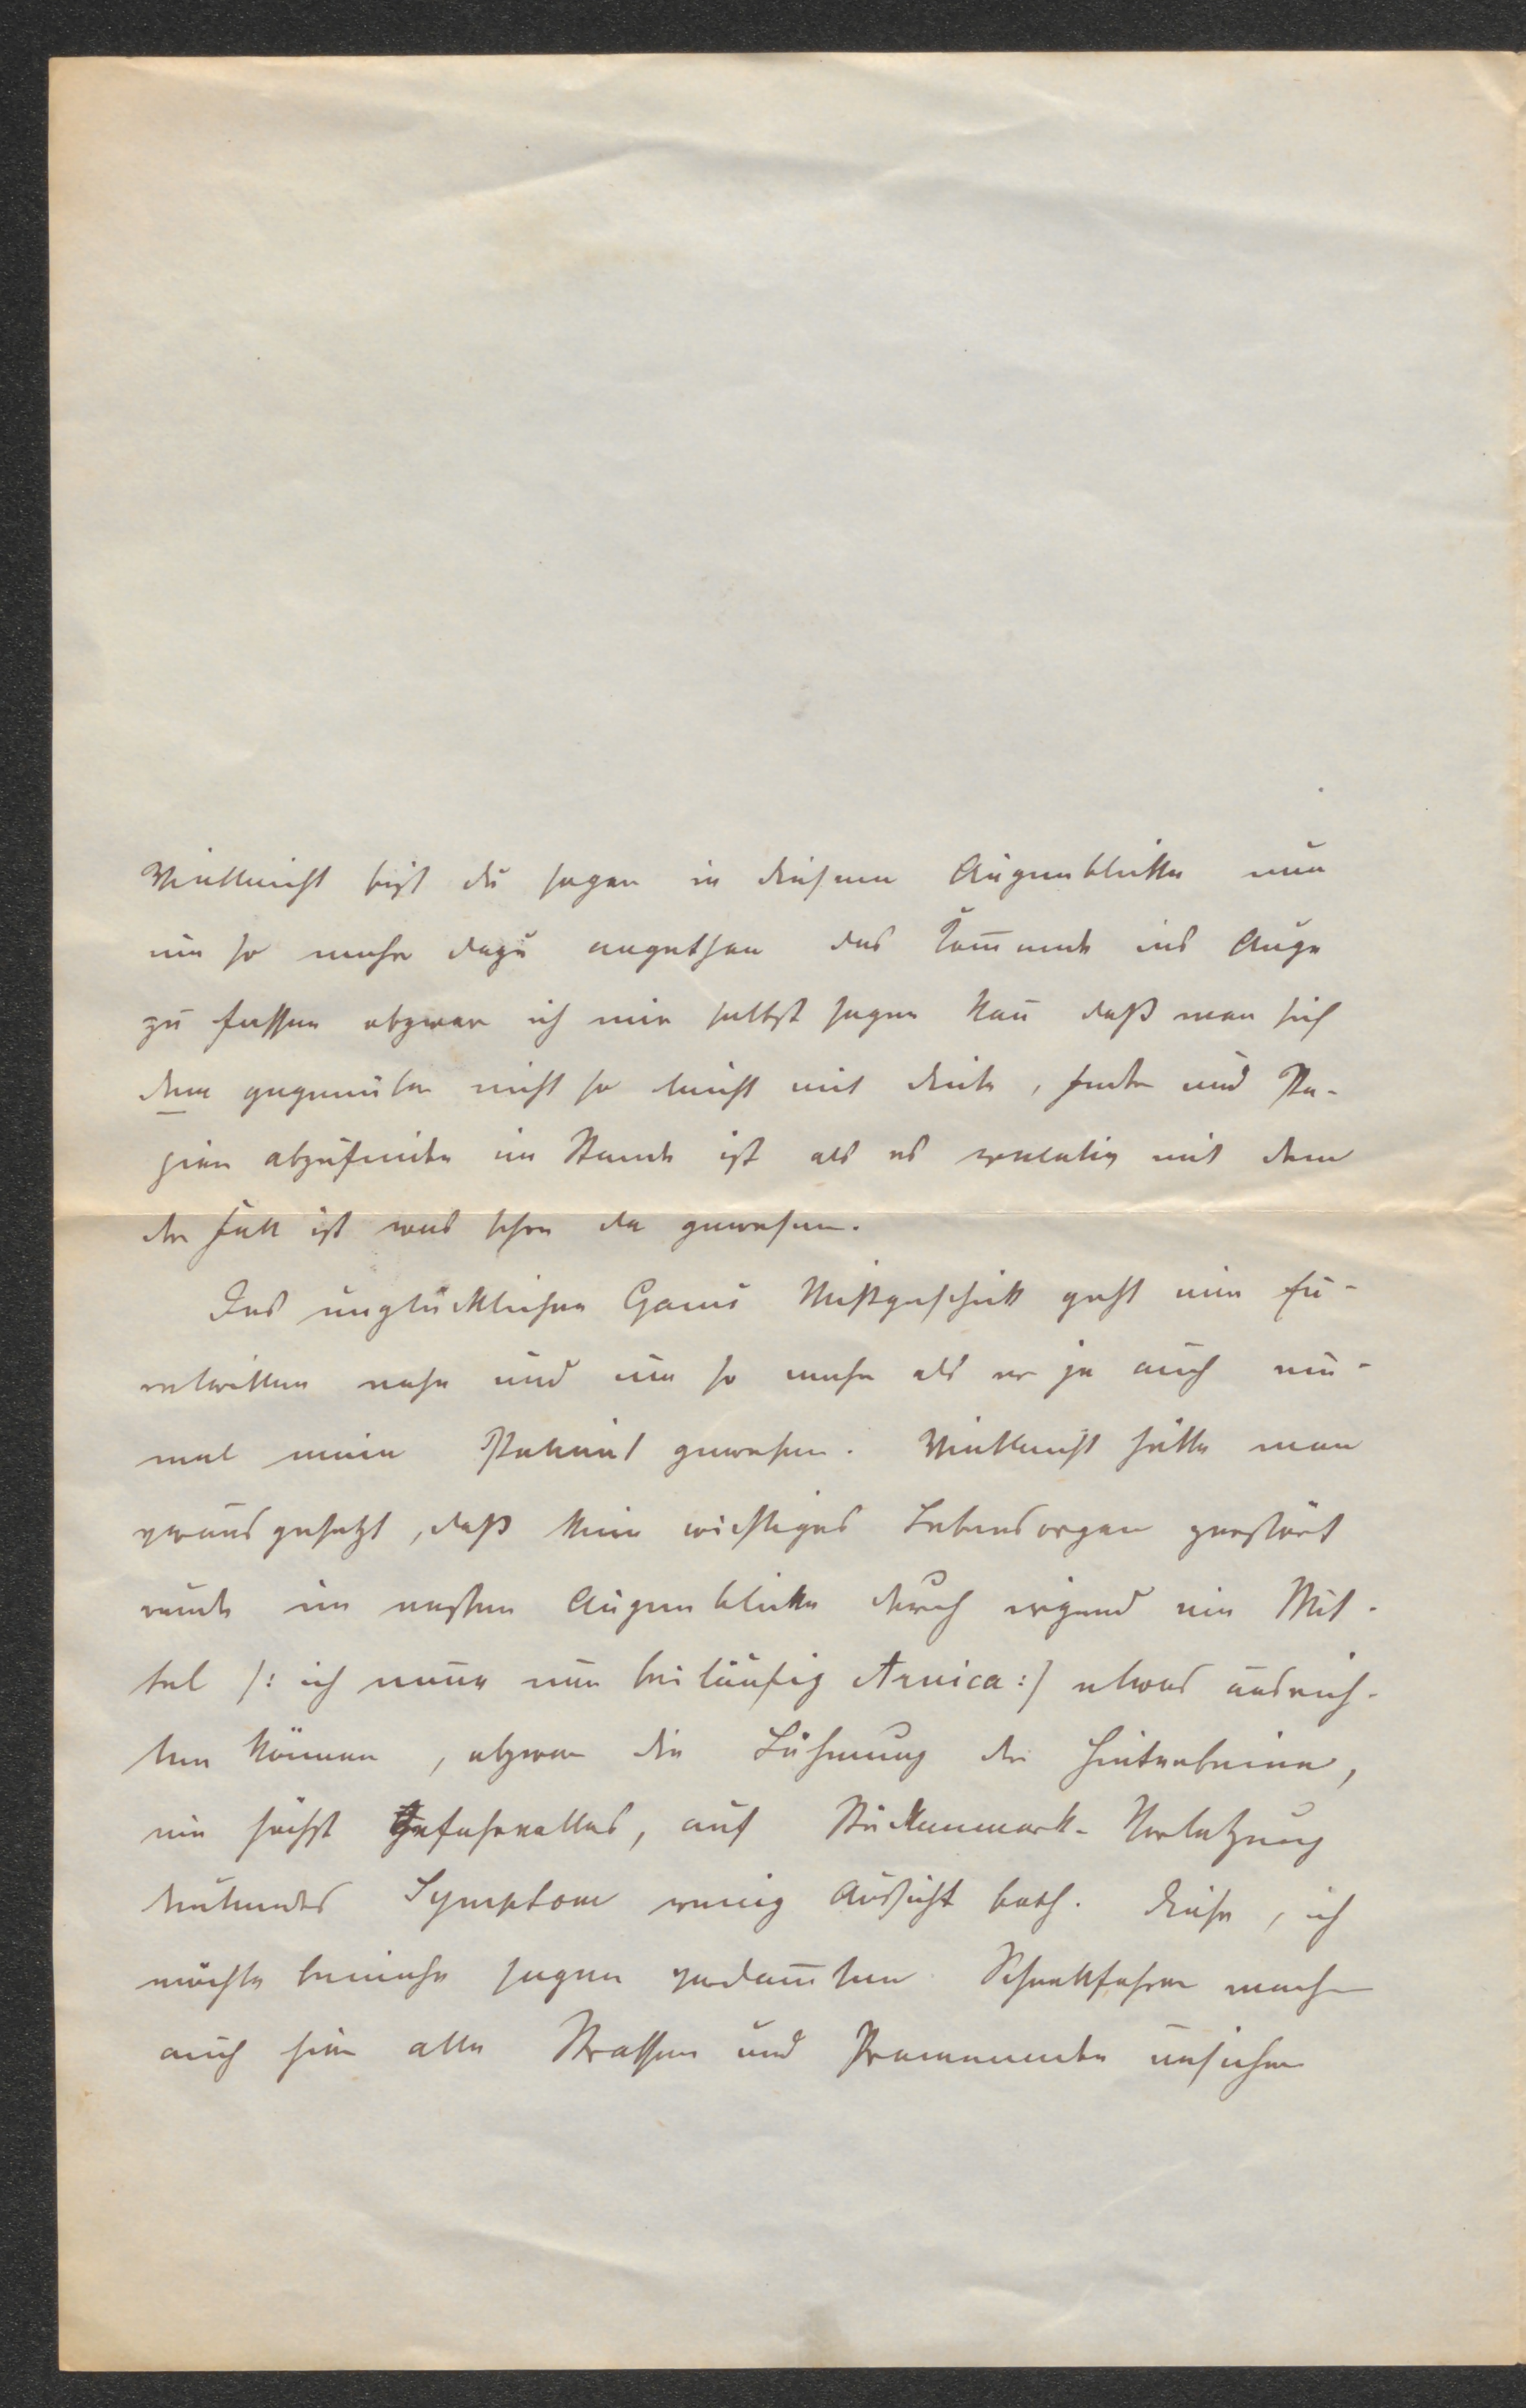 Vielleicht bist du sogar in diesem Augenblicke nun
um so mehr dazu angethan das Kom̄ende ins Auge
zu fassen obzwar ich mir selbst sagen kan̄ daß man sich
dem gegenüber nicht so leicht mit Dinte, Feder und Pa-
pier abzufinden im Stande ist als es relativ mit dem
der Fall ist was schon da gewesen.
Des unglücklichen Gamis Mißgeschick geht mir Eu-
retwillen nahe und um so mehr als er ja auch ein-
mal mein Patient gewesen. Vielleicht hätte man
vorausgesetzt, daß kein wichtiges Lebensorgan zerstört
wurde im ersten Augenblicke durch irgend ein Mit-
tel /: ich nen̄e nur beiläufig Arnica :/ etwas ausrich-
ten können, obzwar die Lähmung der Hinterbeine,
ein höchst gefahrvolles, auf Rückenmark-Verletzung
deutendes Symptom wenig Aussicht both. Diese, ich
möchte beinahe sagen verdam̄ten Schnellfahrer machen
auch hier alle Strassen und Promenaden unsicher